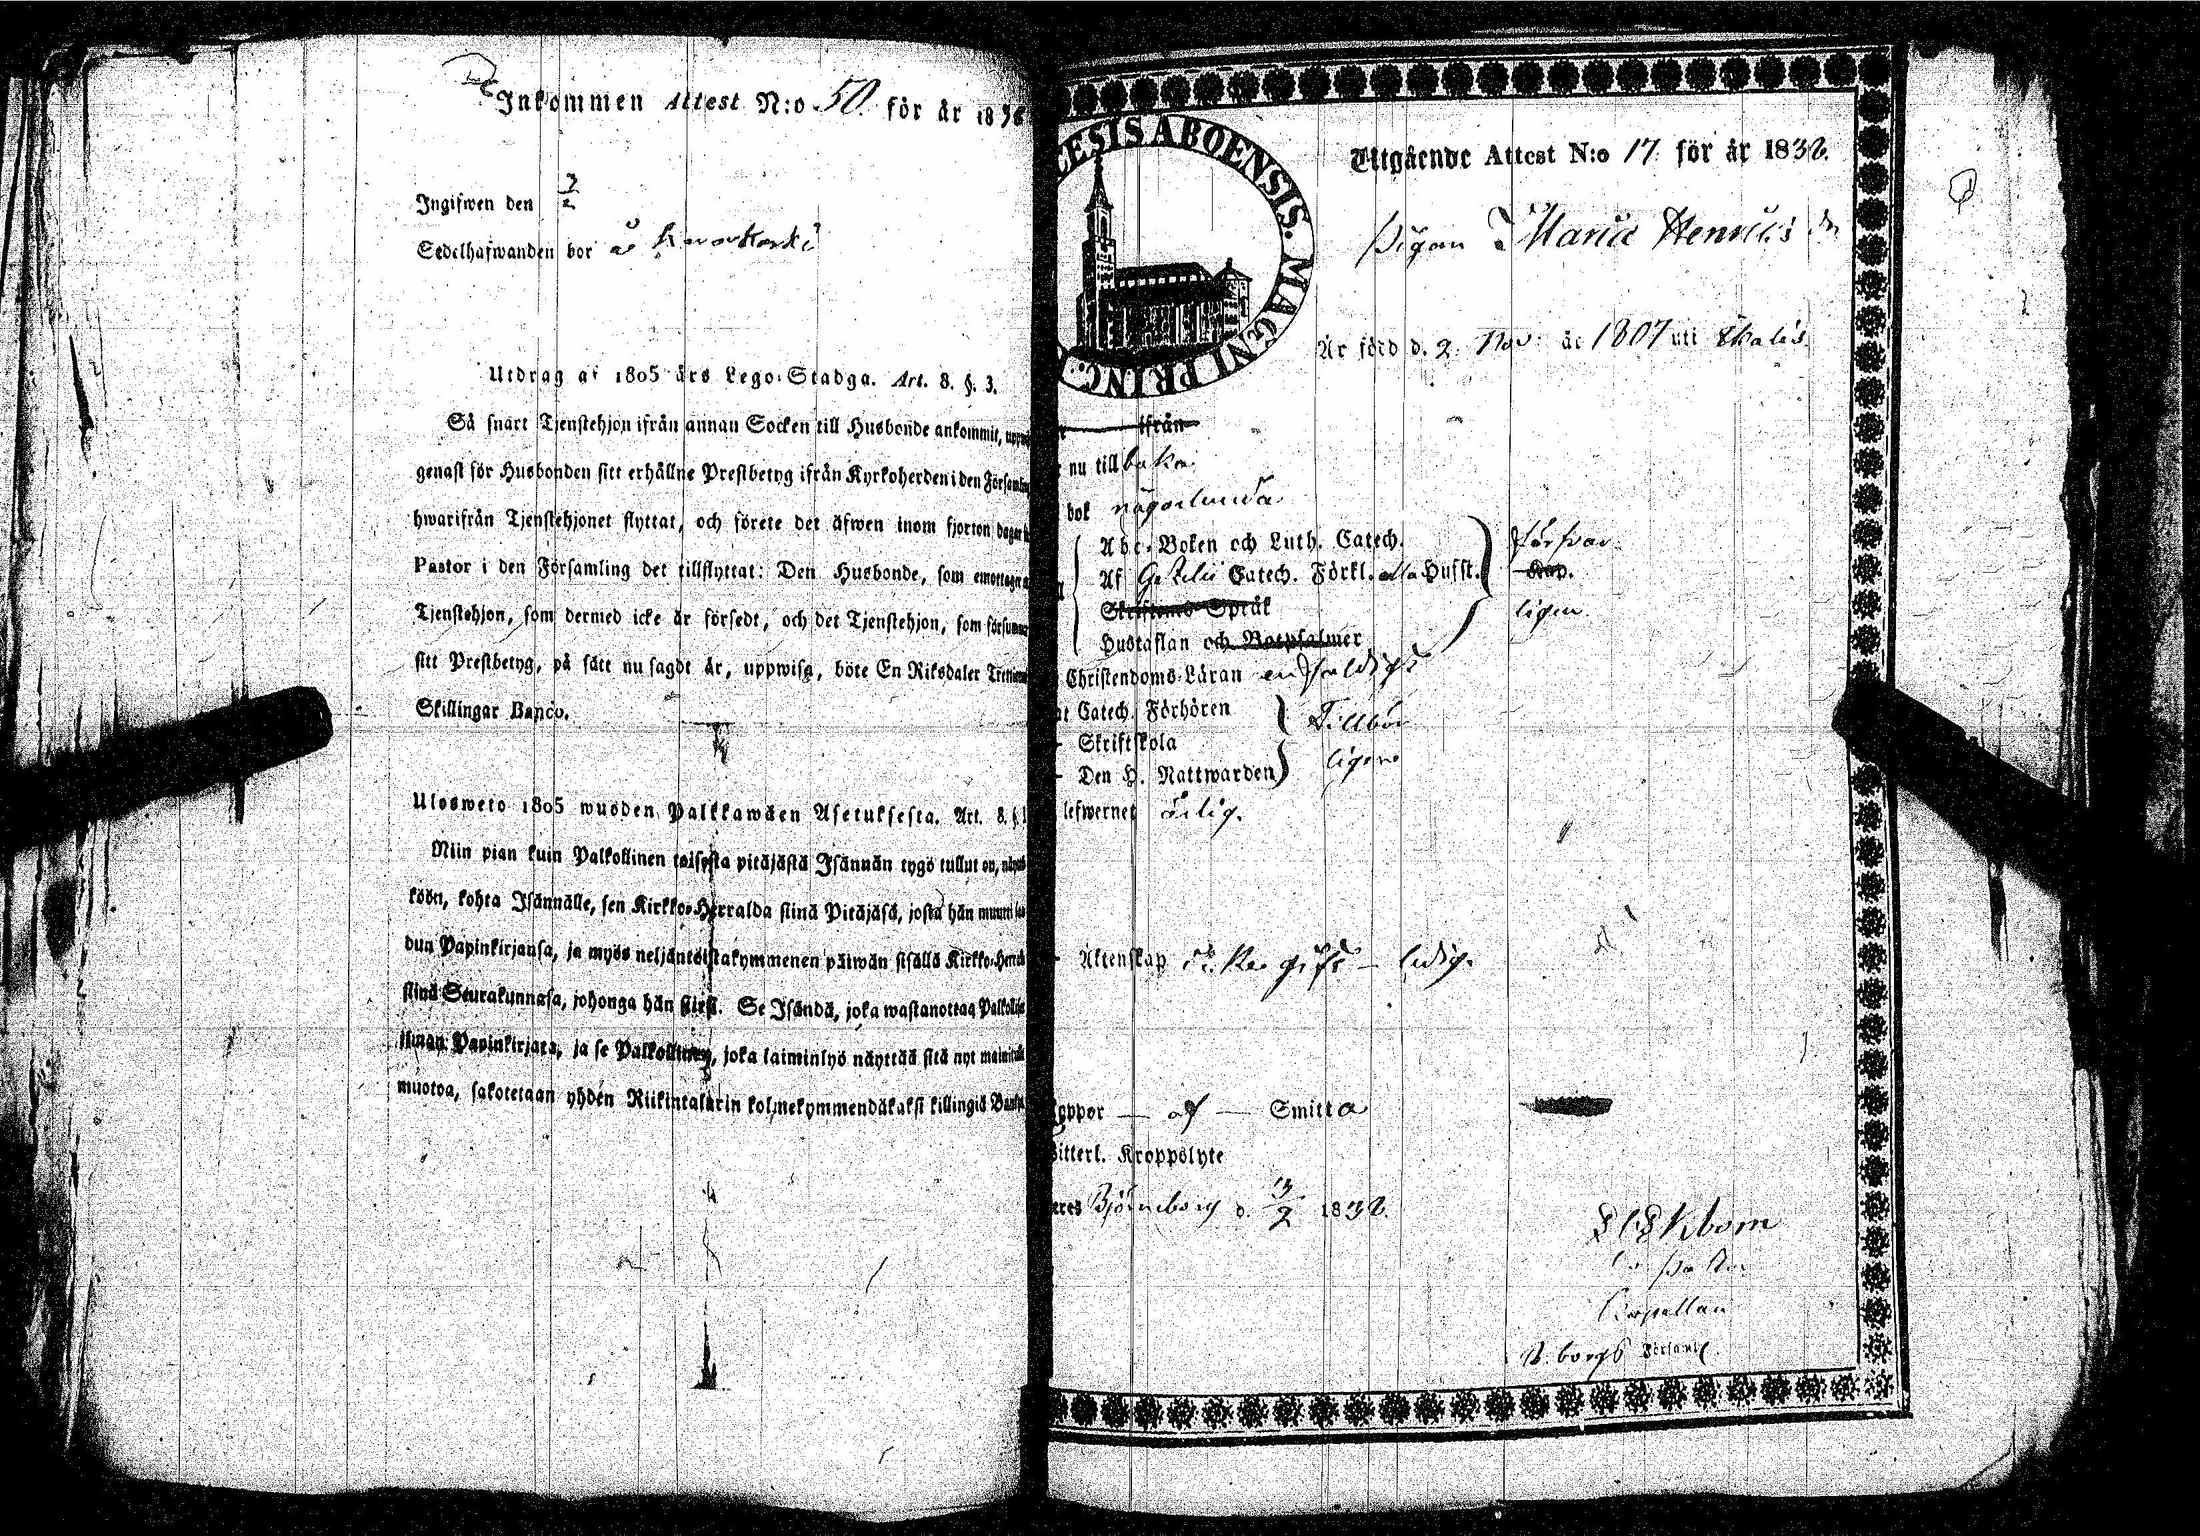 Inkommen Attest N:o 50 för år 1836
Ingifwen den 7/2
Sedelhafwanden bor å
Utdrag af 1805 års Lego-Stadga. Art. 8. §. 3.
Så snart Tjenstehjon ifrån annan Socken till Husbonde ankommit,
genast för Husbonden sitt erhållne Prestbetyg ifrån Kyrkoherden i den
hwarifrån Tjenstehjonet flyttat, och förete det äfwen inom fjorton dagar
Pastor i den Församling det tillflyttat: Den Husbonde, som
Tjenstehjon, som dermed icke är försedt, och det Tjenstehjon, som
sitt Prestbetyg, på sätt nu sagdt är, uppwisa, böte En Riksdaler
Skillingar Banco.
Ulosweto 1805 wuoden Palkkawäen Asetuksesta. Art. 8. §
Niin pian kuin Palkollinen toisesta pitäjästä Isännän tygö tullut on,
köön, kohta Isännälle, sen Kirkko-Herralda siinä Pitäjäsä, josta hän
dun Papinkirjansa, ja myös neljäntoistakymmenen päiwän sisällä
siinä Seurakunnasa, johonga hän siirsi. Se Isändä, joka wastanottaa
ilman Papinkirjata, ja se Palkollinen, joka laiminlyö näyttää sitä nyt
muotoa, sakotetaan yhden Riikintalarin kolmekymmendäkaksi killingiä
ESIS ABOENSIS. MAGNI PRINC.
Utgående Attest N:o 17 för år 1836.
Pigan Maria Henrics dr
Är född d. 2 Nov. år 1807 uti
ifrån
nu till baka
bok någorlunda
Abc-Boken och Luth. Catech.
Af Gezelii Catech. Förkl. Husst.
Skriftenes Språk
Hustaflan och Botpsalmer
försvar
Kap.
ligen
Christendoms-Läran enfaldigt
Catech. Förhören
Skriftskola
Den H. Nattwarden
Tillbör
ligen
lefwernet ärlig.
Äktenskap icke gift – ledig.
af Smitta
Kroppslyte
Björneborg d. 13/2 1836.
Ekbom
Capellan
B.borgs Församl.